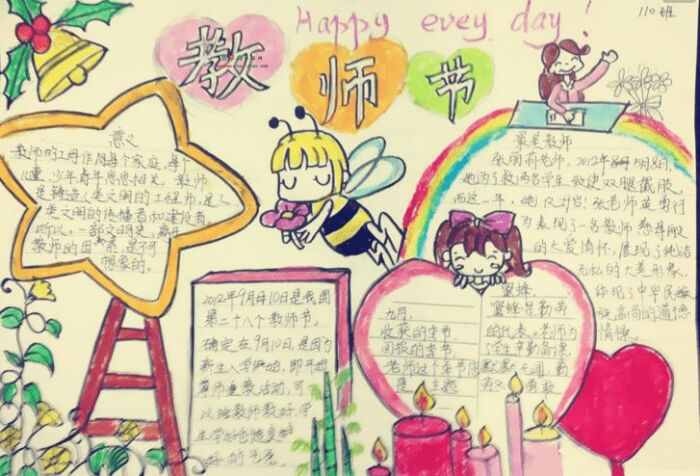 Happy evey day!
110班
教师节
意义
教师的工作与每个家庭、每个
儿童、少年息息相关。教师
是铸造人类文明的工程师,是人
类文明的传播者和建设者
所以,一部文明史,离开
教师的因素,是不可
想象的。
2012年9月10日是我国
第二十八个教师节。
确定在9月10日是因为
新生入学开始,即开始
尊师重教活动,可
以给教师教好,学
生学好创造良
好的气氛
九月,
收获的季节
回报的季节
老师这个季节
是 主题
蜜蜂:
蜜蜂是勤劳
的代表,老师为
学生辛勤备课,
默默无闻,
最美教师
张丽莉老师,2012年5月8日,
她为了救两名学生致使双腿截肢,
而这一年,她 张老师英勇行
为表现了一名教师
的大爱情怀,展现了
无私的大美形象,
体现了中华民族
崇高的道德
情操。